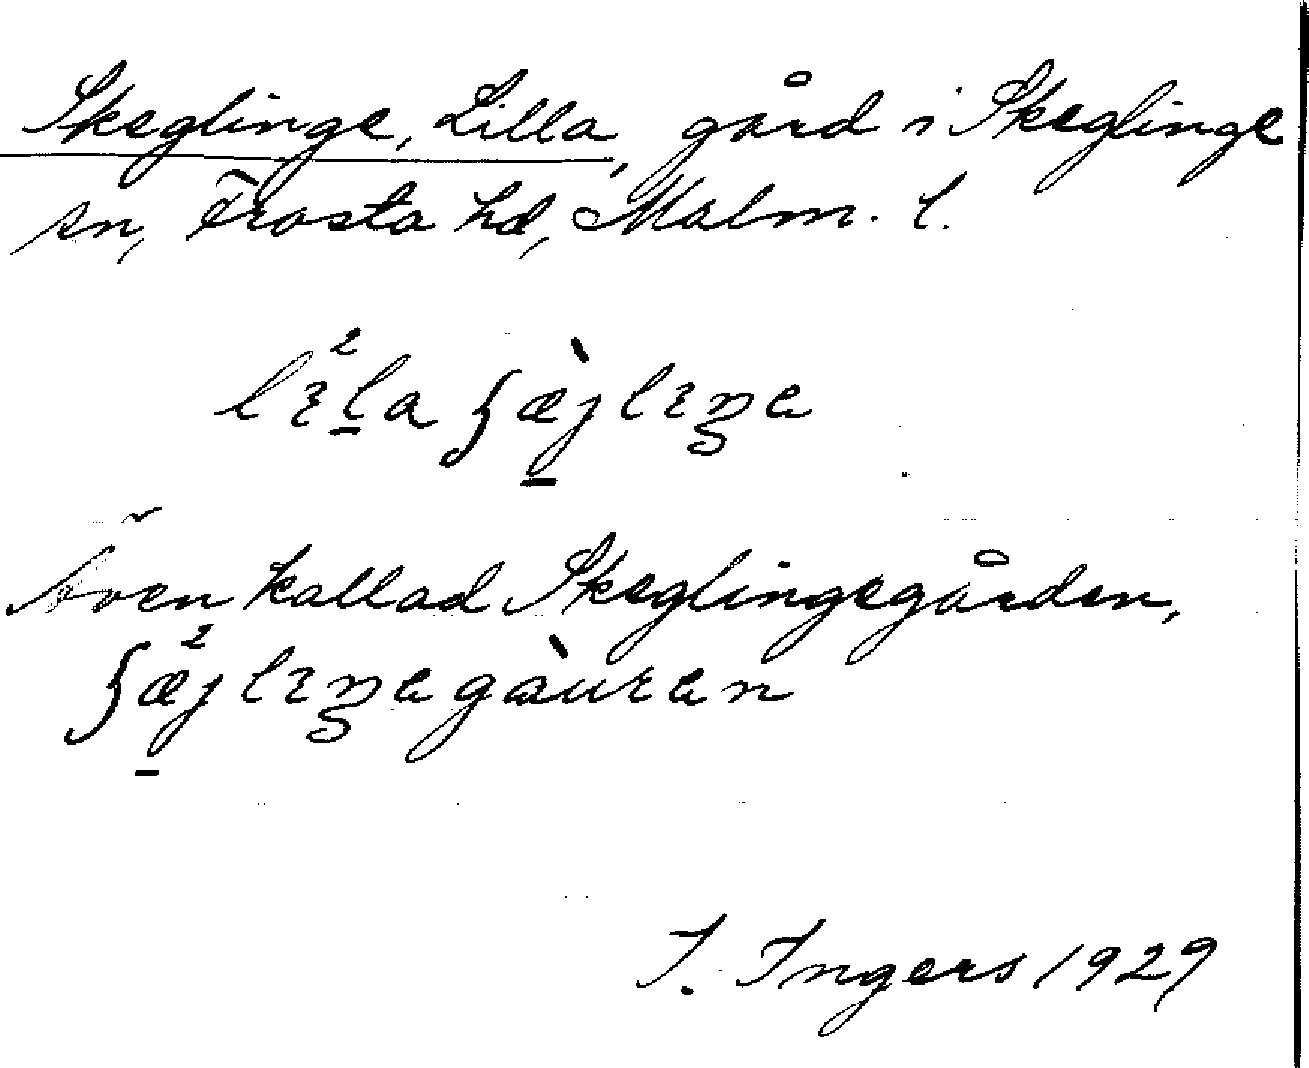 Skeglinge, Lilla, gård i Skeglinge
sn, Frosta hd, Malm. l.
Även kallad Skeglingegården,
I. Ingers 1929